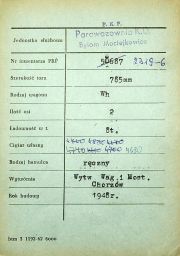 P. K. P.
Jednostka służbowa
Parowozownia Kl. I
Bytom Maciejkowice
Nr inwentarza PKP
50687 2219-6
Szerokość toru
785mm
Rodzaj wagonu
Wh
Ilość osi
2
Ładowność w t.
8t.
Ciężar własny
4690
Rodzaj hamulca
ręczny
Wytwórnia
Wytw Wag.i Most.
Chorzów
Rok budowy
1948r.